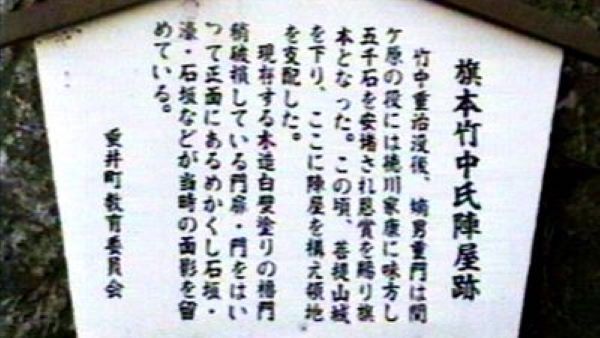 旗本竹中氏陣屋跡
竹中重治没後、嫡男重門は関
ケ原の役には徳川家康に味方し
五千石を安堵され恩賞を賜り旗
本となった。この頃、菩提山城
を下り、ここに陣屋を構え領地
を支配した。
現存する木造白壁塗りの櫓門
稍破損している門扉・門をはい
って正面にあるめかくし石垣・
濠・石垣などが当時の面影を留
めている。
垂井町教育委員会